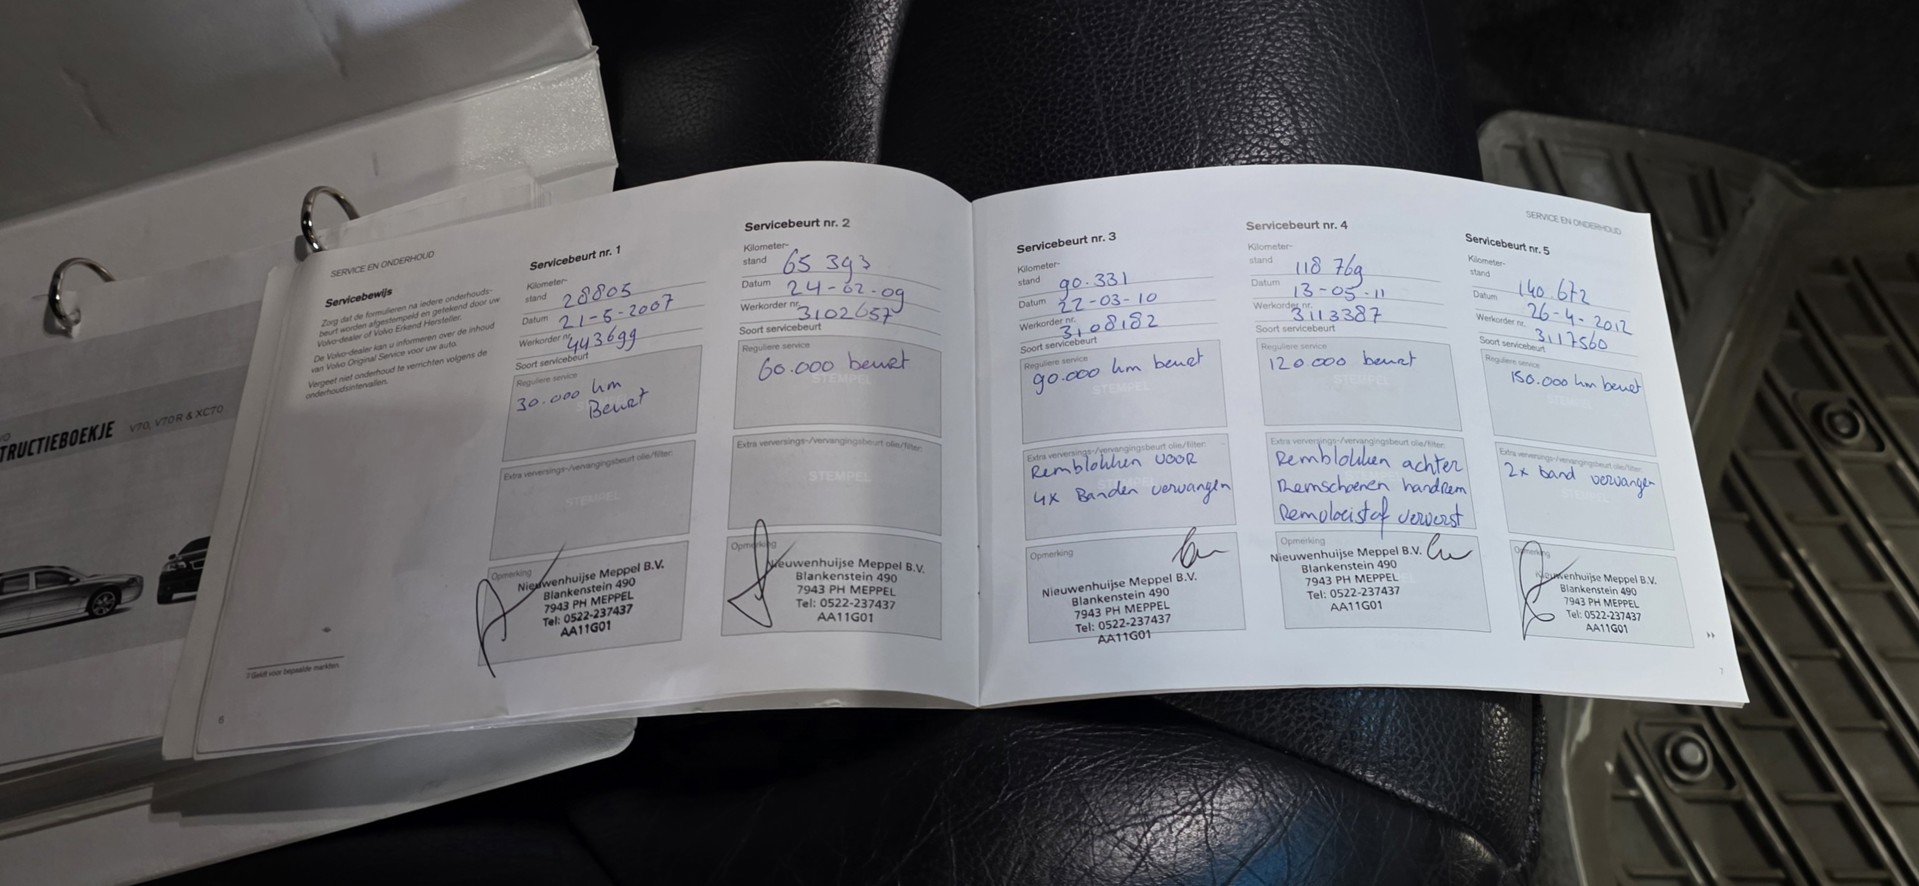 TRUCTIEBOEKJE V70, V70 R & XC70
SERVICE EN ONDERHOUD
Servicebewijs
Zorg dat de formulieren na iedere onderhouds-
beurt worden afgestempeld en getekend door uw
Volvo-dealer of Volvo Erkend Hersteller.
De Volvo-dealer kan u informeren over de inhoud
van Volvo Original Service voor uw auto.
Vergeet niet onderhoud te verrichten volgens de
onderhoudsintervallen.
7 Geldt voor bepaalde markten.
6
Servicebeurt nr. 1
Kilometer-
stand 28805
Datum 21-5-2007
Werkorder nr. 443699
Soort servicebeurt
Reguliere service
30.000 km
Beurt
Extra verversings-/vervangingsbeurt olie/filter:
STEMPEL
Opmerking
Nieuwenhuijse Meppel B.V.
Blankenstein 490
7943 PH MEPPEL
Tel: 0522-237437
AA11G01
Servicebeurt nr. 2
Kilometer-
stand 65 393
Datum 24-02-09
Werkorder nr. 3102657
Soort servicebeurt
Reguliere service
60.000 beurt
STEMPEL
Extra verversings-/vervangingsbeurt olie/filter:
STEMPEL
Opmerking
Nieuwenhuijse Meppel B.V.
Blankenstein 490
7943 PH MEPPEL
Tel: 0522-237437
AA11G01
Servicebeurt nr. 3
Kilometer-
stand 90.331
Datum 22-03-10
Werkorder nr. 3108182
Soort servicebeurt
Reguliere service
90.000 km beurt
STEMPEL
Extra verversings-/vervangingsbeurt olie/filter:
Remblokken voor
4x Banden vervangen
Opmerking
Nieuwenhuijse Meppel B.V.
Blankenstein 490
7943 PH MEPPEL
Tel: 0522-237437
AA11G01
Servicebeurt nr. 4
Kilometer-
stand 118 769
Datum 13-05-11
Werkorder nr. 3113387
Soort servicebeurt
Reguliere service
120.000 beurt
STEMPEL
Extra verversings-/vervangingsbeurt olie/filter:
Remblokken achter
Remschoenen handrem
Remvloeistof ververst
Opmerking
Nieuwenhuijse Meppel B.V.
Blankenstein 490
7943 PH MEPPEL
Tel: 0522-237437
AA11G01
SERVICE EN ONDERHOUD
Servicebeurt nr. 5
Kilometer-
stand 140.672
Datum 26-4-2012
Werkorder nr. 3117560
Soort servicebeurt
Reguliere service
150.000 km beurt
STEMPEL
Extra verversings-/vervangingsbeurt olie/filter:
2x band vervangen
Opmerking
Nieuwenhuijse Meppel B.V.
Blankenstein 490
7943 PH MEPPEL
Tel: 0522-237437
AA11G01
7